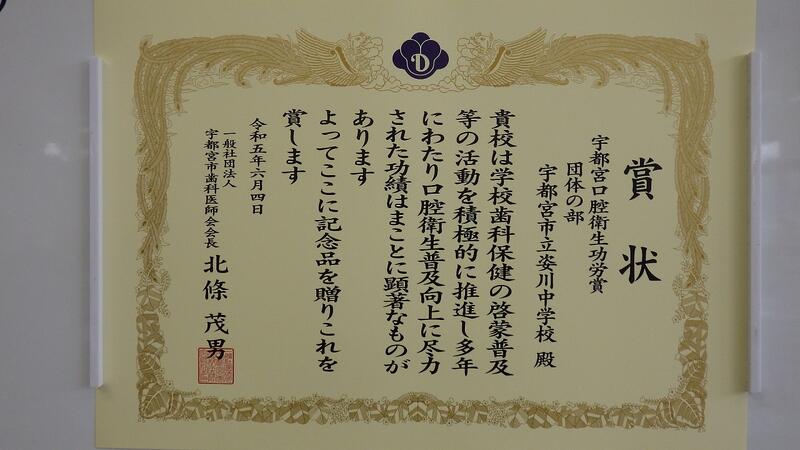 D
賞状
宇都宮口腔衛生功労賞
団体の部
宇都宮市立姿川中学校 殿
貴校は学校歯科保健の啓蒙普及
等の活動を積極的に推進し多年
にわたり口腔衛生普及向上に尽力
された功績はまことに顕著なものが
あります
よってここに記念品を贈りこれを
賞します
令和五年六月四日
一般社団法人
宇都宮市歯科医師会会長 北條茂男